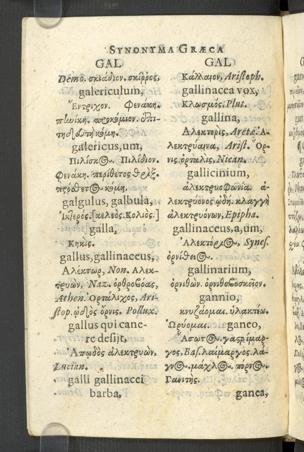 SYNONYMA GRÆCA
GAL
Demo. σκιάδιον. σκίρρος,
galericulum,
Ἔντριχον. Φενάκη.
galericus, um,
Πιλίσκος. Πιλίδιον.
Φενάκη. περίθετος θρὶξ.
κόμη.
galgulus, galbula,
Ἴκτερος. [κελεὸς. Κολιὸς.]
galla,
Κηκίς.
gallus, gallinaceus,
Ἀλέκτωρ, Non. Ἀλεκ-
τρυὼν, Naz. ὀρθροβόας,
Athen. Ὀρτάλιχος, Ari-
stop. ὄρνις. Pollux.
gallus qui cane-
re desijt,
Ἀπῳδὸς ἀλεκτρυὼν,
Lucian.
galli gallinacei
barba,
GAL
Κάλλαιον, Aristoph.
gallinacea vox,
Κλωσμὸς. Plut.
gallina,
Ἀλεκτορὶς, Aretæ. Ἀ-
λεκτρύαινα, Arist. Ὄρ-
νις ὀρταλὶς, Nican.
gallicinium,
ἀλεκτρυοφωνία. ἀ-
λεκτρυόνος ᾠδὴ. κλαγγὴ
ἀλεκτρυόνων, Epipha.
gallinaceus, a, um,
Synes.
ὀρνίθειος.
gallinarium,
ὀρνιθὼν. ὀρνιθοβοσκεῖον.
gannio,
κνυζάομαι. ὑλακτέω.
Ὠρύομαι. ganeo,
Ἄσωτος. γαστρίμαρ-
γος. Bas. λαίμαργος. λά-
γνος. μάχλος. πόρνος.
ganea,